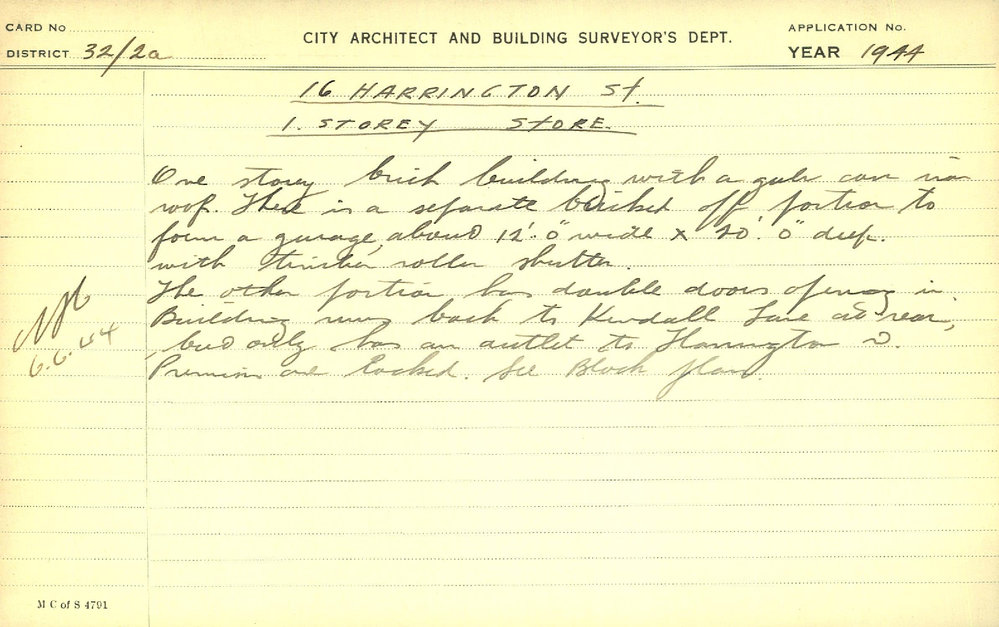 CARD No
DISTRICT 32/2a
CITY ARCHITECT AND BUILDING SURVEYOR'S DEPT.
APPLICATION No.
YEAR 1944
16 HARRINGTON St.
1. STOREY STORE.
One storey brick building with a galv corr iron
roof. There is a separate bricked off portion to
form a garage, about 12'.0" wide x 20'.0" deep.
with timber roller shutter.
The other portion has double doors opening in.
Building runs back to Kendall Lane at rear,
but only has an outlet to Harrington St.
Premises are locked. See Block plan.
6.6.44
M C of S 4791